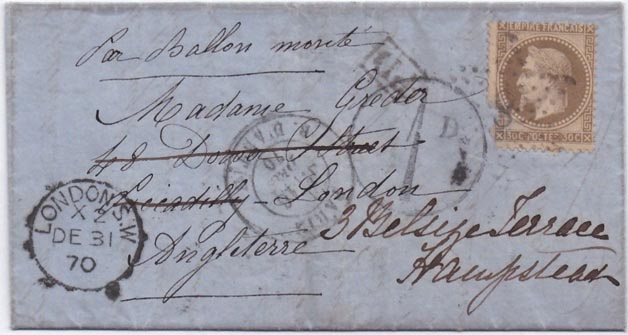 Par Ballon monté
Madame Greder
48 Dover Street
Piccadilly - London
Angleterre
3 Belsize Terrace
Hampstead
EMPIRE FRANÇAIS
30C POSTES 30C
LONDON.S.W
X 2
DE 31
70
1
D